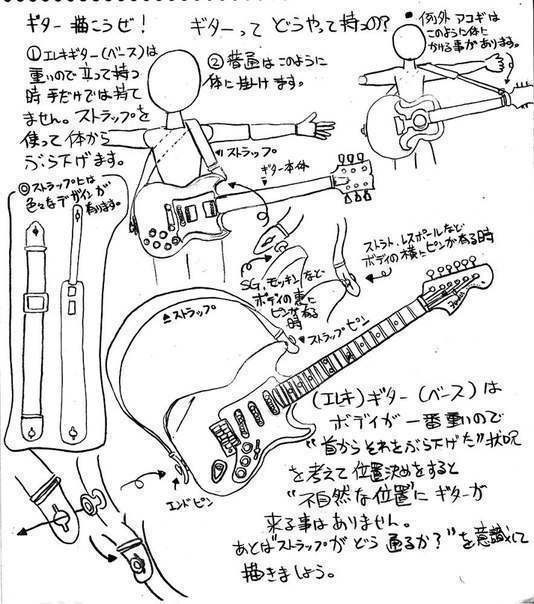 ギター描こうぜ!
ギターって どうやって持つの?
■例外 アコギは
このように体に
かける事があります。
①エレキギター(ベース)は
重いので立って持つ
時手だけでは持て
ません。ストラップを
使って体から
ぶら下げます。
②普通はこのように
体に掛けます。
ストラップ
ギター本体
◎ストラップには
色々なデザインが
あります。
ストラト、レスポールなど
ボディの横にピンが有る時
SG、モッキンなど
ボディの裏に
ピンが有る
時
ストラップ
ストラップピン
エンドピン
(エレキ)ギター(ベース)は
ボディが一番重いので
“首からそれをぶら下げた”状況
を考えて位置決めをすると
“不自然な位置”にギターが
来る事はありません。
あとは“ストラップがどう通るか?”を意識して
描きましょう。